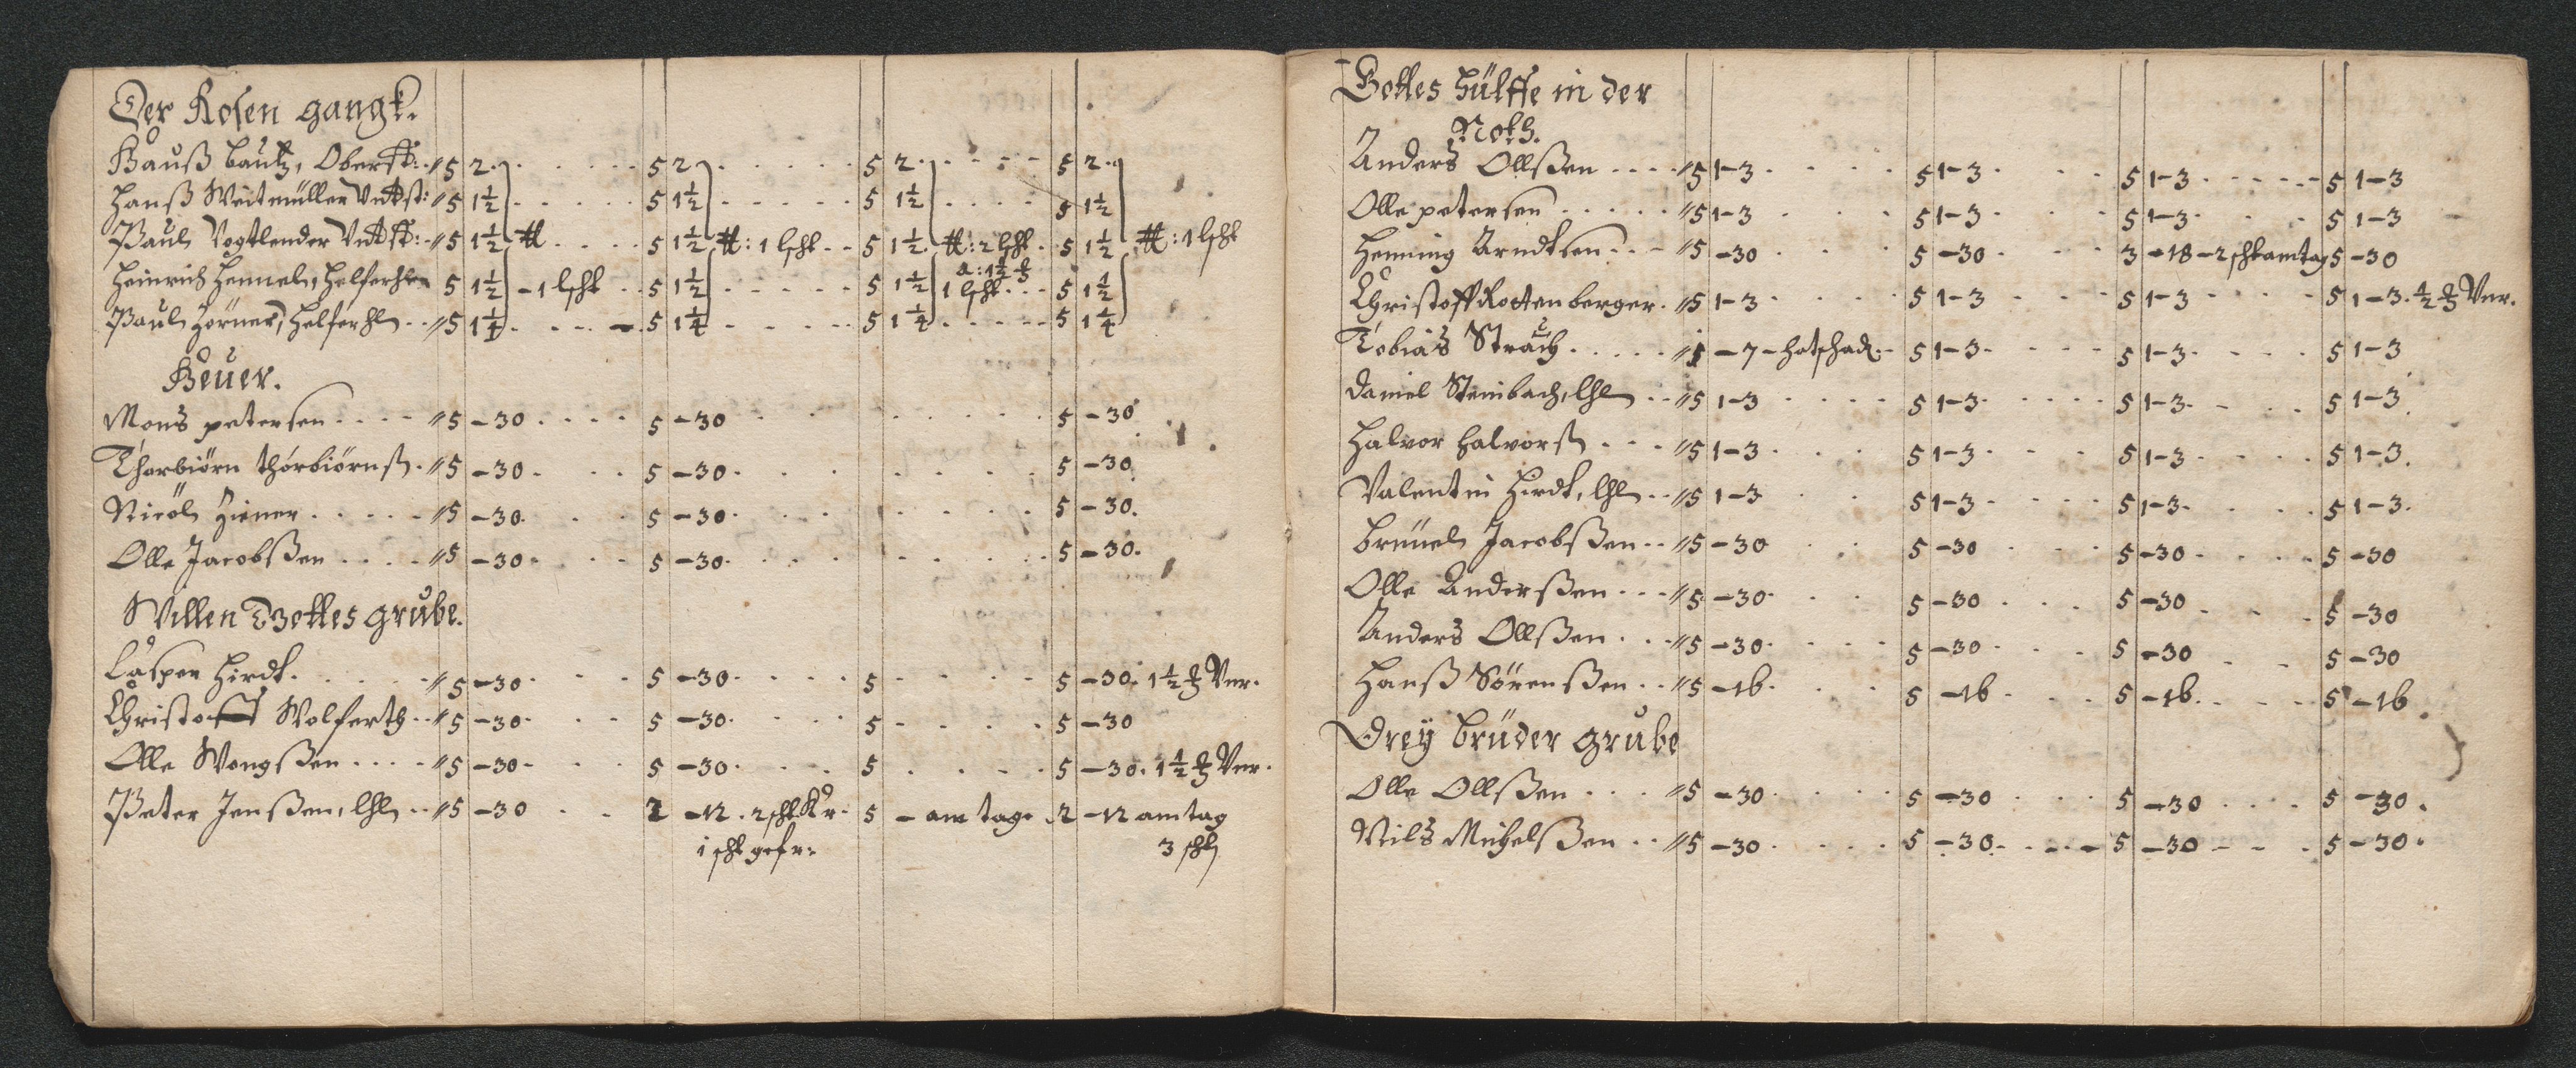 Der Rosen gangk.
Hanß Bautz, Oberst: 〃 5 2. 5 2 5 2. 5 2.
Hanß Weitmüller Vntst: 〃 5 1½ 5 1½ 5 1½ 5 1½
Paul Vogtlender Vntst: 〃 5 1½ tt 5 1½ tt: 1 lscht 5 1½. tt: 2 lscht. 5 1½ tt: 1 lscht
Heinrich Hennel, Helferhl 5 1½ - 1 lscht 5 1½ 5 1½ 1 lscht 5 1½
Paul Hörner, Helferhl 〃 5 1¼ 5 1¼ 5 1¼ 5 1¼
Heuer.
Mons petersen 〃 5 - 30 5 - 30 5 - 30
Thorbiörn thörbiörnß. 〃 5 - 30 5 - 30 5 - 30
Nicöl Ziener 〃 5 - 30 5 - 30 5 - 30.
Olle Jacobßen 〃 5 - 30 5 - 30 5 - 30.
Willen Gottes grube.
Casper Hirdt 〃 5 - 30 5 - 30 5 5 - 30. 1½ Vnr.
Christoff Wolferth 〃 5 - 30 5 - 30 5 5 - 30
Olle Mongßen 〃 5 - 30 5 - 30 5 5 - 30. 1½ Vnr.
Peter Jenßen, lhl 〃 5 - 30 2 - 12. 2 scht Kr. 5 - am tage 2 - 12 am tag
1 scht gefr: 3 scht
Gottes hülffe in der
Noth.
Anders Ollßen 〃 5 1-3 5 1-3 5 1-3 5 1-3
Olle petersen 〃 5 1-3 5 1-3 5 1-3 5 1-3
Henning Arndtsen 〃 5 - 30 5 - 30 3 - 18 - 2 scht am tag 5 - 30
Christoff Rottenberger. 〃 5 1-3 5 1-3 5 1-3 5 1-3. ½ Vnr.
Tobias Strauch 〃 1 - 7 - hatschad. 5 1-3 5 1-3 5 1-3
Daniel Steinbach, lhl 〃 5 1-3 5 1-3 5 1-3 5 1-3
Halvor halvorß 〃 5 1-3 5 1-3 5 1-3 5 1-3.
Valentin Hirdt, lhl 〃 5 1-3 5 1-3 5 1-3 5 1-3.
Brünel Jacobßen 〃 5 - 30 5 - 30 5 - 30 5 - 30
Olle Anderßen 〃 5 - 30 5 - 30 5 - 30 5 - 30
Anders Ollßen 〃 5 - 30 5 - 30 5 - 30 5 - 30
Hanß Sörenßen 〃 5 - 16 5 - 16 5 - 16 5 - 16.
Dreÿ brüder grube
Olle Ollßen 〃 5 - 30 5 - 30 5 - 30 5 - 30.
Nils Michelßen 〃 5 - 30 5 - 30 5 - 30 5 - 30.